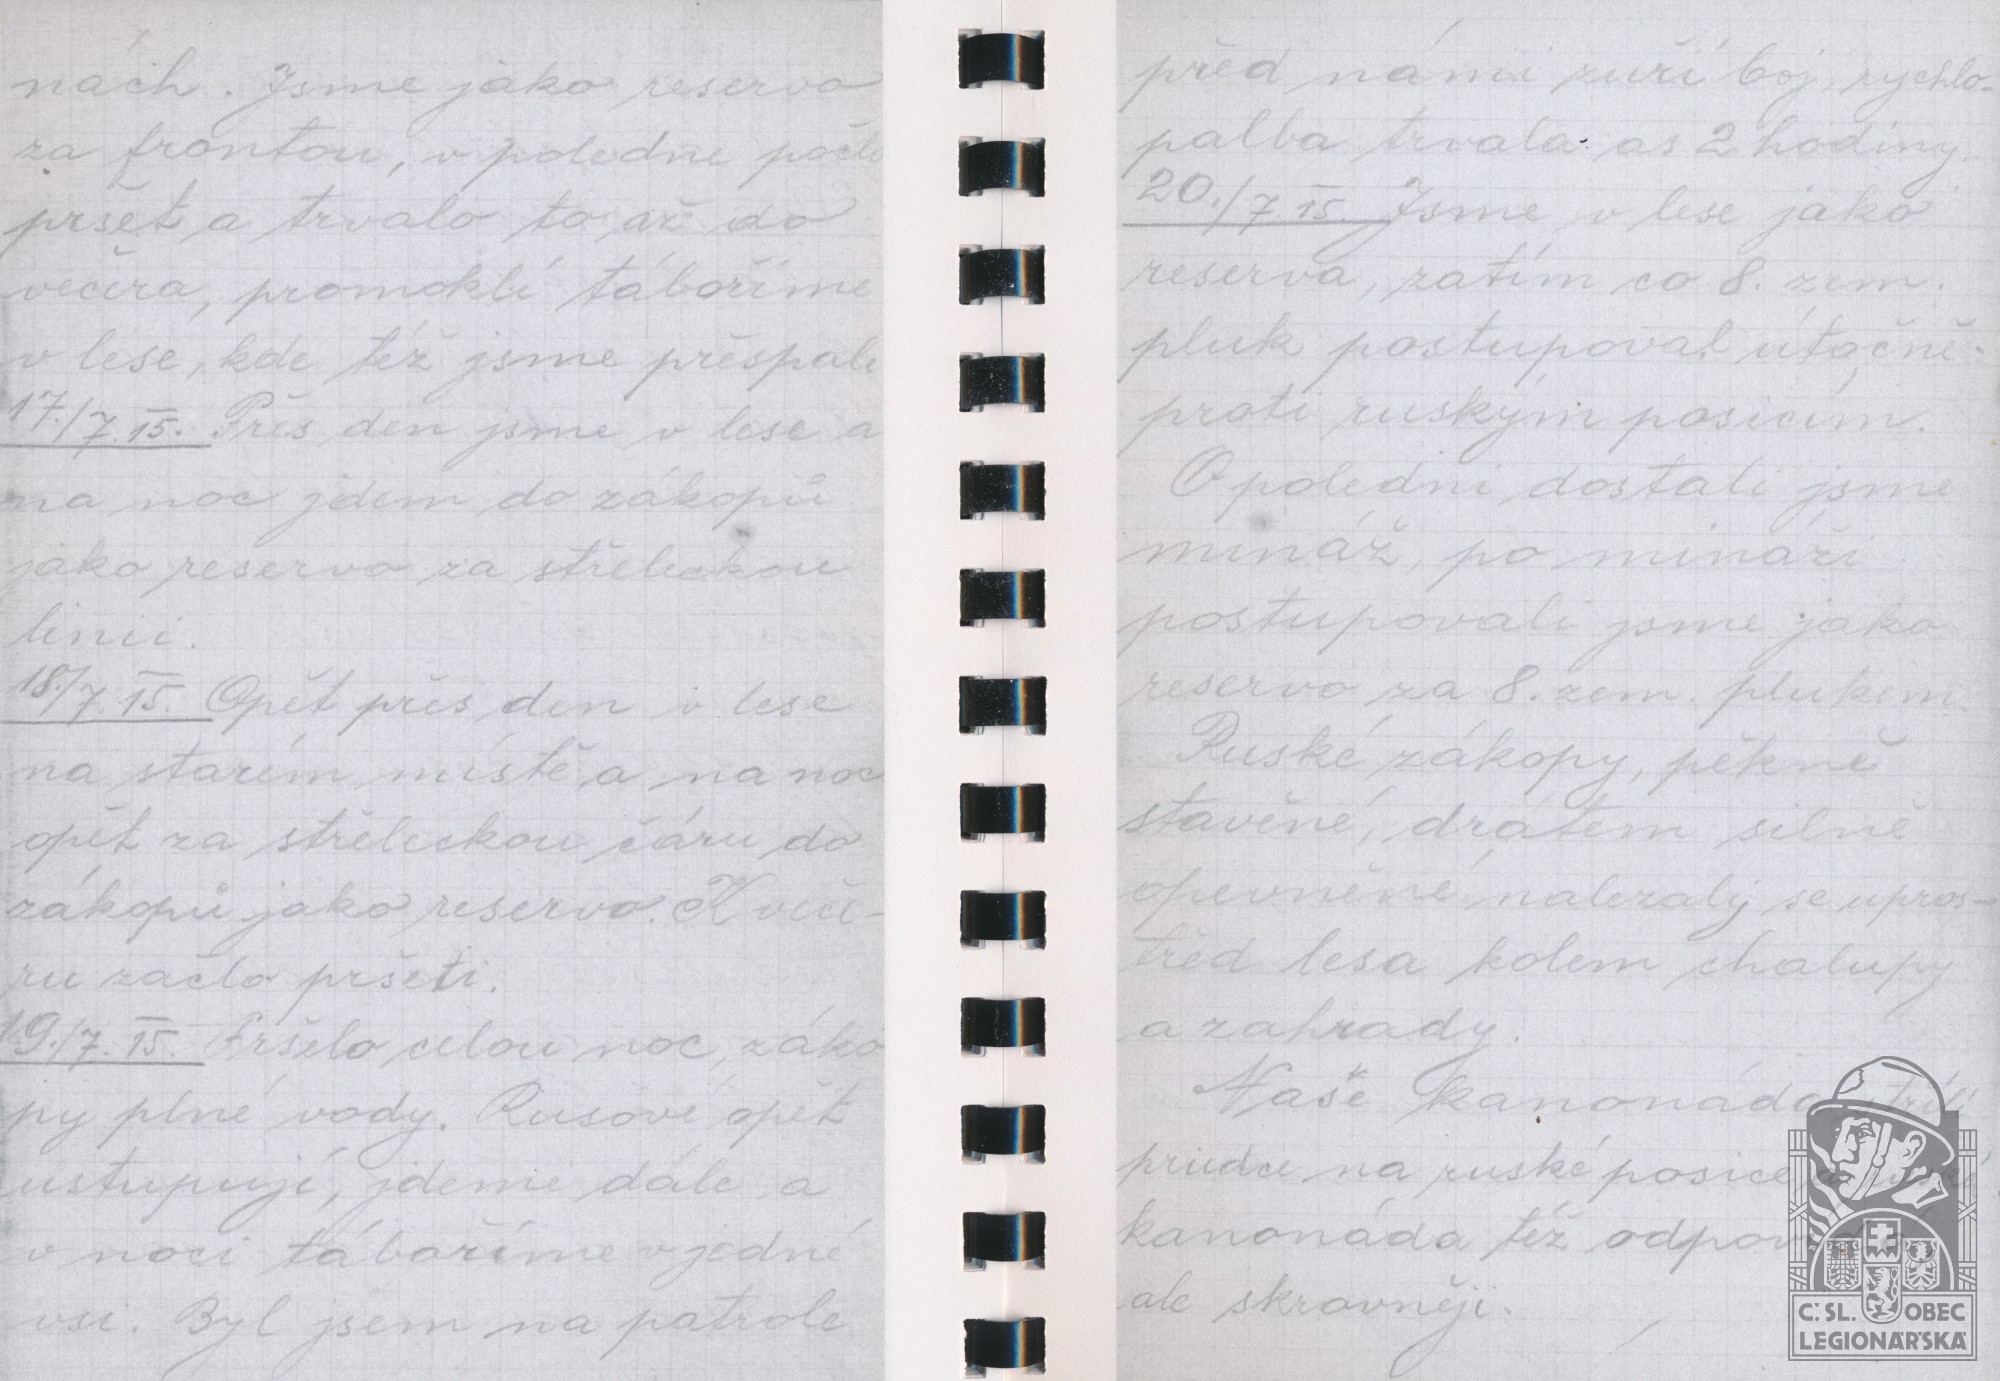 nách. Jsme jako reserva
za frontou, v poledne počlo
pršet a trvalo to až do
večera, promoklí táboříme
v lese, kde též jsme přespali
17./7. 15. Přes den jsme v lese a
na noc jdem do zákopů
jako reserva za střeleckou
linii.
18./7. 15. Opět přes den v lese
na starém místě a na noc
opět za střeleckou čáru do
zákopů jako reserva. K veče-
ru začlo pršeti.
19./7. 15. Pršelo celou noc, záko
py plné vody. Rusové opět
ustupují, jdeme dále a
v noci táboříme v jedné
vsi. Byl jsem na patrole
před námi zuří boj, rychlo-
palba trvala as 2 hodiny.
20./7. 15. Jsme v lese jako
reserva, zatím co 8. zem.
pluk postupoval útočně
proti ruským posicím.
O poledni dostali jsme
mináž po mináži
postupovali jsme jako
reserva za 8. zem. plukem.
Ruské zákopy, pěkně
stavěné, drátem silně
opevněné nalezaly se upros-
třed lesa kolem chalupy
a zahrady.
Naše kanonáda střílí
prudce na ruské posice a
kanonáda též
ale skrovněji.
Č. SL. OBEC
LEGIONÁŘSKÁ